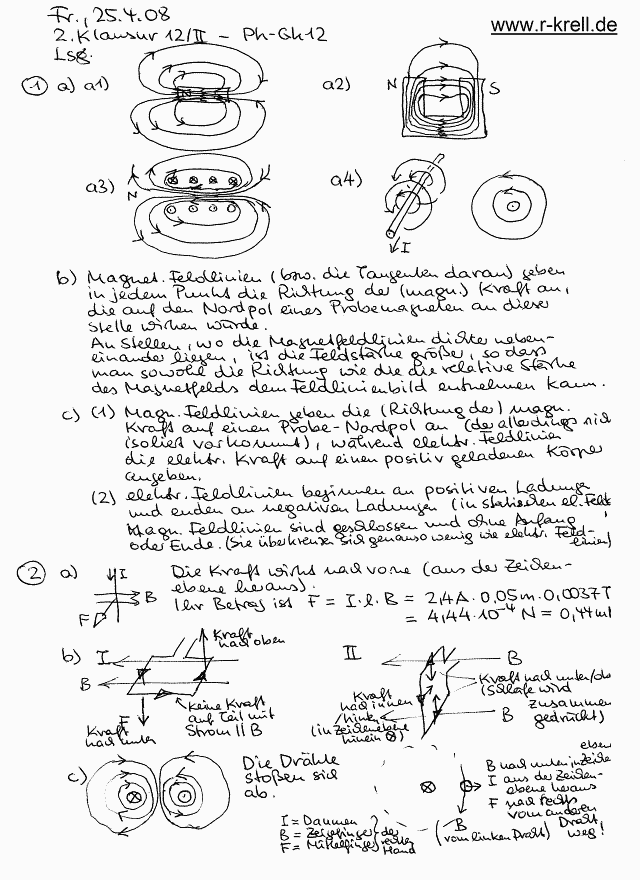 Fr., 25.4.08
www.r-krell.de
2. Klausur 12/II - Ph-Gk12
Lsg.
① a) a1)
a2) N S
a3) N
a4) I
b) Magnet. Feldlinien (bzw. die Tangenten daran) geben
in jedem Punkt die Richtung der (magn.) Kraft an,
die auf den Nordpol eines Probemagneten an dieser
Stelle wirken würde.
An Stellen, wo die Magnetfeldlinien dichter neben-
einander liegen, ist die Feldstärke größer, so dass
man sowohl die Richtung wie die die relative Stärke
des Magnetfelds dem Feldlinienbild entnehmen kann.
c) (1) Magn. Feldlinien geben die (Richtung der) magn.
Kraft auf einen Probe-Nordpol an (der allerdings nie
isoliert vorkommt), während elektr. Feldlinien
die elektr. Kraft auf einen positiv geladenen Körper
angeben.
(2) elektr. Feldlinien beginnen an positiven Ladungen
und enden an negativen Ladungen (in statischen el. Feld
Magn. Feldlinien sind geschlossen und ohne Anfang
oder Ende. (Sie überkreuzen sich genauso wenig wie elektr. Feld-
linien)
② a) I B F
Die Kraft wirkt nach vorne (aus der Zeichen-
ebene heraus).
Ihr Betrag ist F = I·l·B = 2,4A · 0,05m · 0,0037T
= 4,44·10⁻⁴ N = 0,44m
b) I B
Kraft
nach oben
F
Kraft
nach unten
keine Kraft
auf Teil mit
Strom || B
II B
Kraft nach unten/
(Schleife wird
zusammen
gedrückt)
B
Kraft
nach innen
/hinten
(in Zeichenebene
hinein ⊗)
c) Die Drähte
stoßen sich
ab.
I = Daumen
B = Zeigefinger
F = Mittelfinger
der
rechten
Hand
B
(vom linken Draht)
B nach unten in Zeichen
ebene
I aus der Zeichen-
ebene heraus
F nach rechts
vom anderen
Draht
weg!